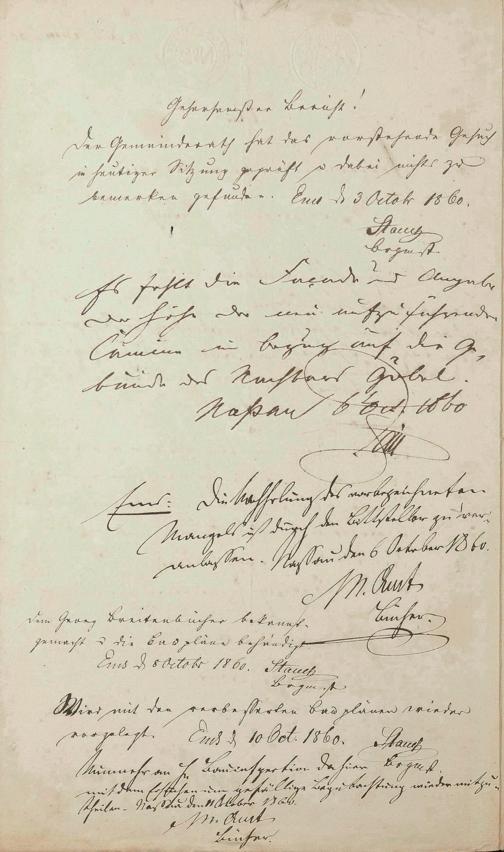 Gehorsamster Bericht!
Der Gemeinderath hat das vorstehende Gesuch
in heutiger Sitzung geprüft u dabei nichts zu
bemerken gefunden. Ems d 3 Octob 1860.
Stauch
Brgmst.
Es fehlt die Façade und Angabe
der Höhe der neu aufzuführenden
Camine in bezug auf die Ge,
bäude des Nachbars Göbel.
Naßau 6 Oct. 1860
Ems: Die Nachholung des vorbezeichneten
Mangels ist durch den Bittsteller zu ver-
anlassen. Nassau den 6 October 1860.
Bücher.
Dem Georg Breitenbücher bekannt
gemacht u die Baupläne behändigt
Ems d 8 Octobr 1860. Stauch
Brgmst
Wird mit den verbesserten Bauplänen wieder
vorgelegt. Ems d 10 Oct. 1860. Stauch
Brgmst.
Nunmehr an H. Bauinspection dahier
mit dem Ersuchen um gefällige Begutachtung wieder mitzu-
theilen. Nassau den 11 October 1860.
Bücher.